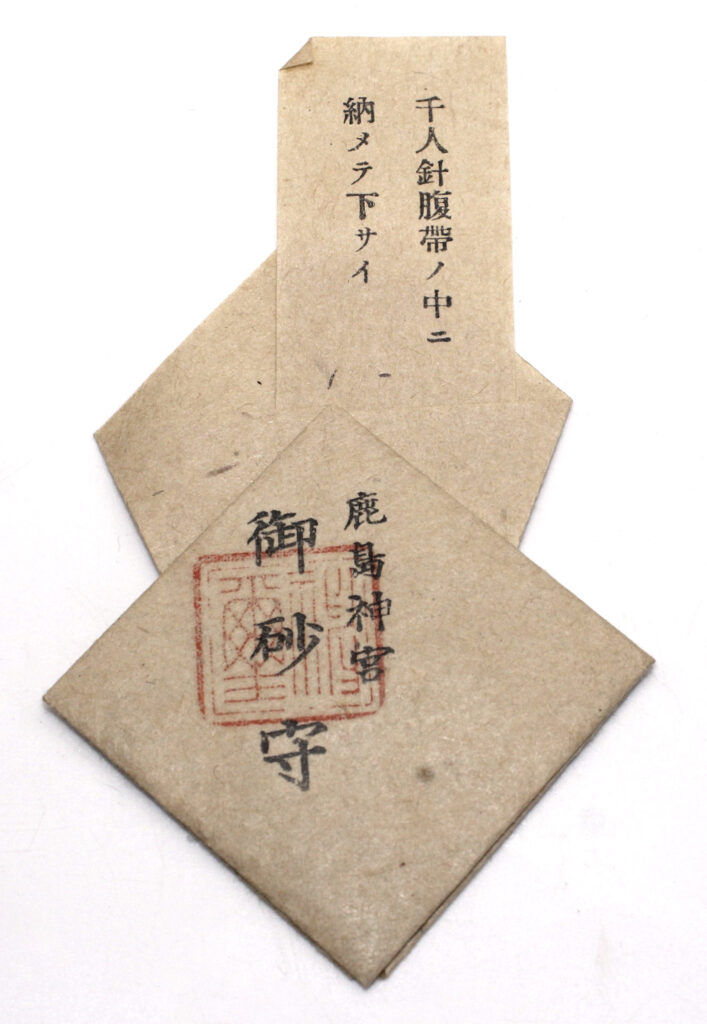 千人針腹帶ノ中ニ
納メテ下サイ
鹿島神宮
御砂守